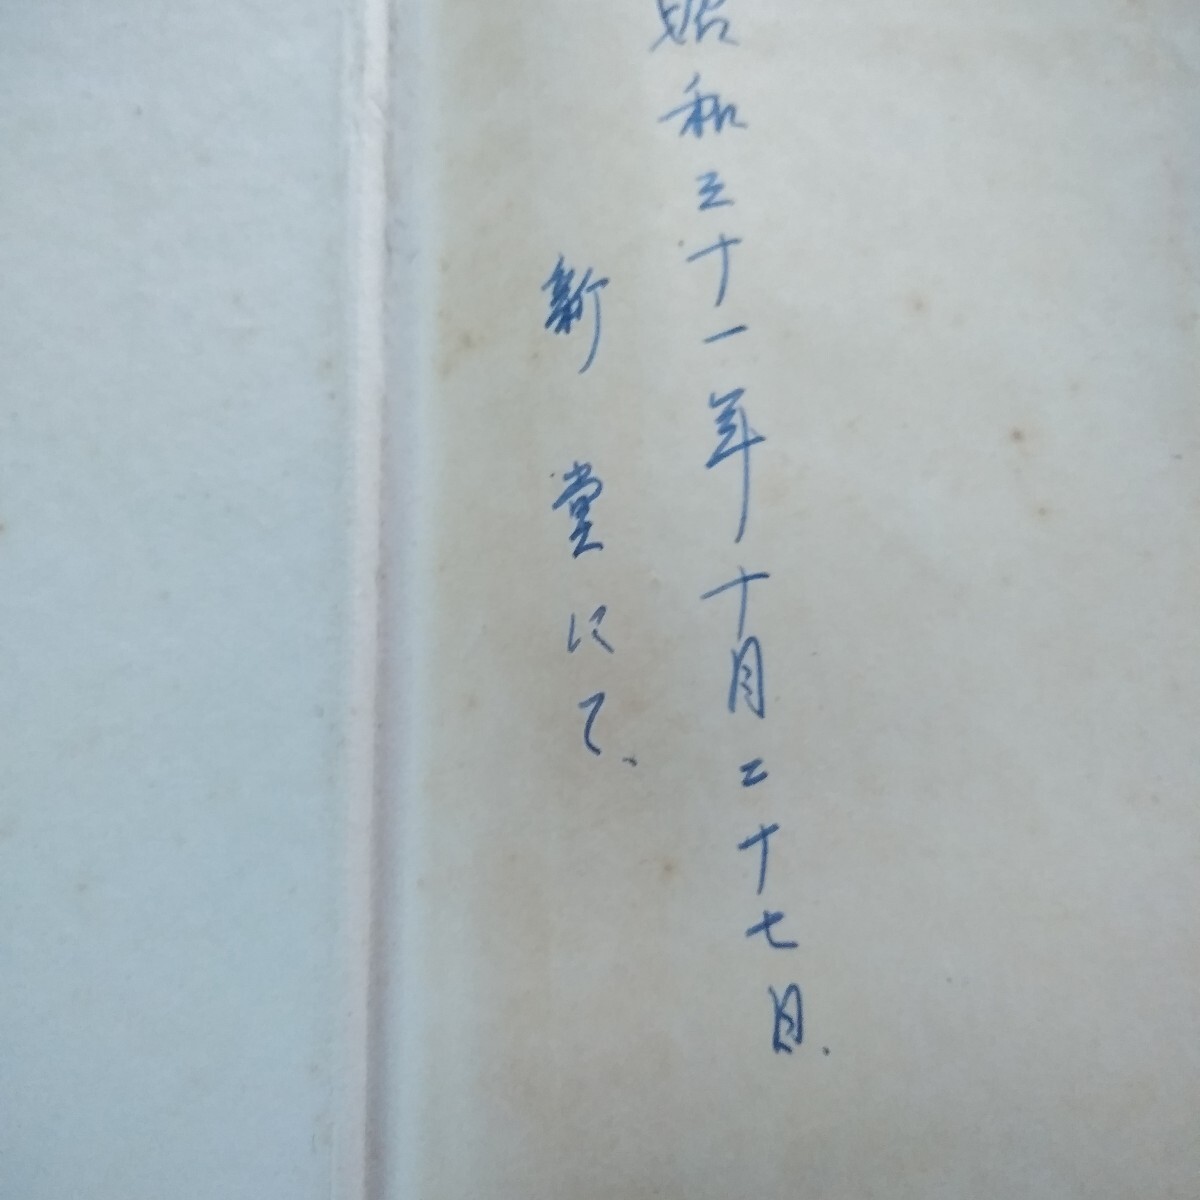 昭和三十一年十月二十七日.
新堂にて、